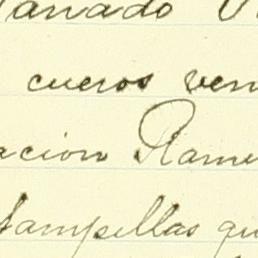 anado
cueros ven
acion Rame
ampillas qu